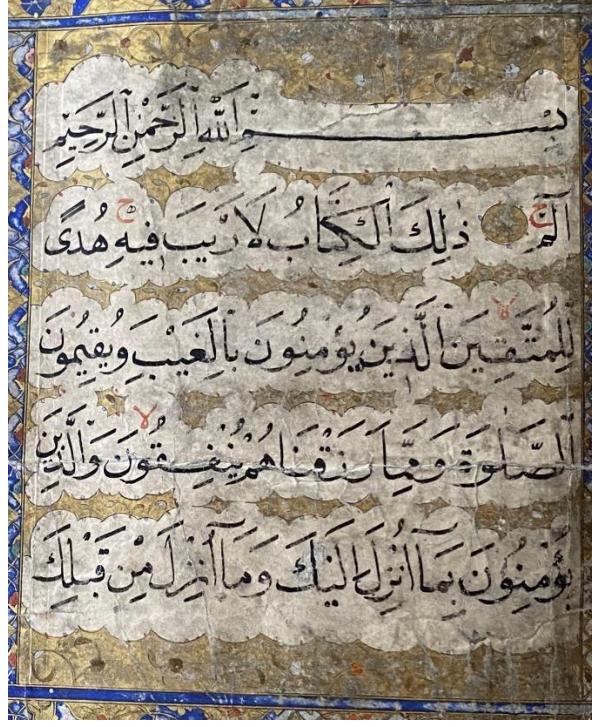 بِسْمِ اللّٰهِ الرَّحْمٰنِ الرَّحِيمِ
الٓمٓ ذٰلِكَ الْكِتَابُ لَا رَيْبَ فِيهِ هُدًى
لِلْمُتَّقِينَ الَّذِينَ يُؤْمِنُونَ بِالْغَيْبِ وَيُقِيمُونَ
الصَّلٰوةَ وَمِمَّا رَزَقْنَاهُمْ يُنْفِقُونَ وَالَّذِينَ
يُؤْمِنُونَ بِمَآ اُنْزِلَ اِلَيْكَ وَمَآ اُنْزِلَ مِنْ قَبْلِكَ